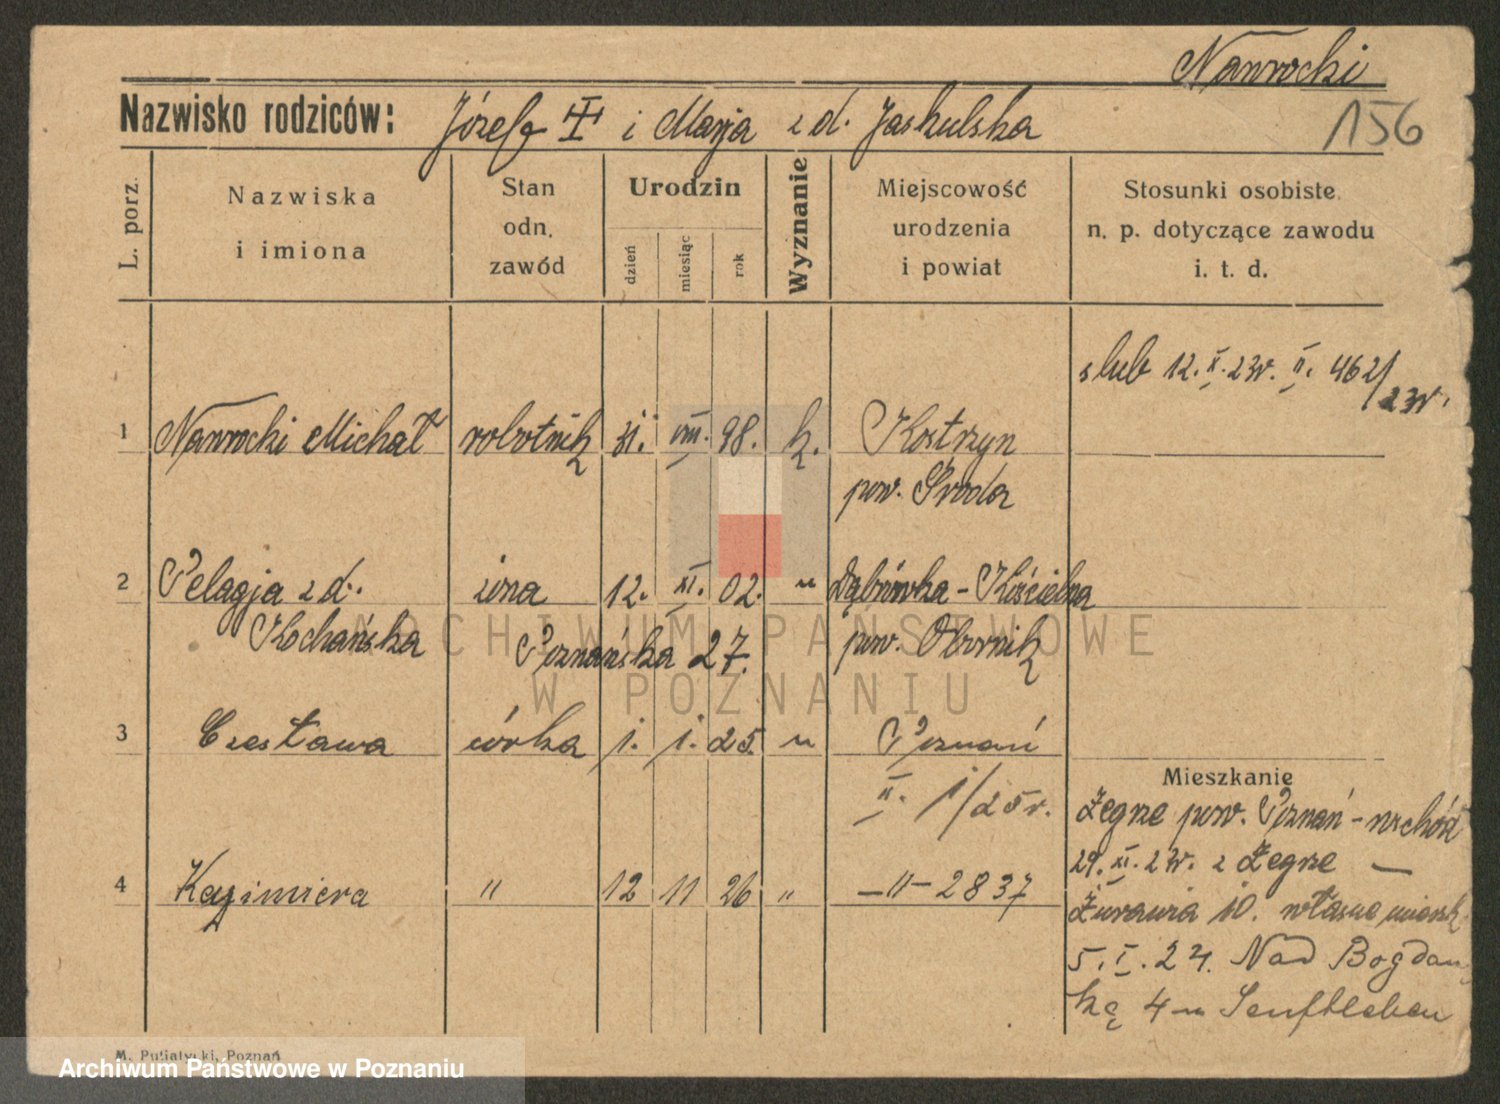 Nawrocki
Nazwisko rodziców: Józef ‡ i Marja z d. Jaskulska
156
L. porz.
Nazwiska
i imiona
Stan
odn.
zawód
Urodzin
dzień
miesiąc
rok
Wyznanie
Miejscowość
urodzenia
i powiat
Stosunki osobiste.
n. p. dotyczące zawodu
i. t. d.
ślub 12. X. 23r. II. 462/
23r.
1 Nawrocki Michał robotnik 31. VIII. 98. k. Kostrzyn
pow. Środa
2 Pelagja z d. żona 12. XI. 02. " Dąbrówka-Kościelna
Kochańska Poznańska 27. pow. Obornik
ARCHIWUM PAŃSTWOWE
W POZNANIU
3 Czesława córka 1. 1. 25. " Poznań
II. 1/25r.
4 Kazimiera " 12 11 26 " —"— 2837
Mieszkanie
Żegrze pow. Poznań - wschód
29. XI. 23r. z Żegrze —
Żurawia 10. własne mieszk.
5. I. 24. Nad Bogdan
ką 4 Senftleben
M. Putiatycki, Poznań
Archiwum Państwowe w Poznaniu